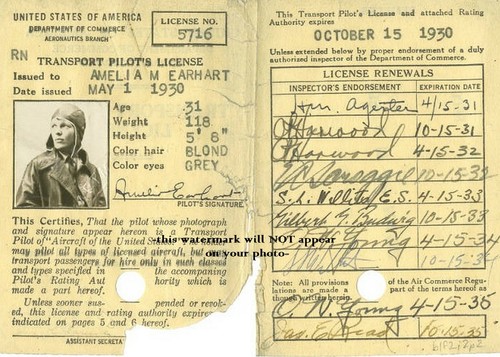 UNITED STATES OF AMERICA
DEPARTMENT OF COMMERCE
AERONAUTICS BRANCH
LICENSE NO.
5716
RN TRANSPORT PILOT'S LICENSE
Issued to AMELIA M EARHART
Date issued MAY 1 1930
Age 31
Weight 118
Height 5' 8"
Color hair BLOND
Color eyes GREY
Amelia Earhart
PILOT'S SIGNATURE
This Certifies, That the pilot whose photograph
and signature appear hereon is a Transport
Pilot of "Aircraft of the United States."
may pilot all types of licensed aircraft, but
transport passengers for hire only in such classes
and types specified in the accompanying
Pilot's Rating Aut hority which is
made a part hereof.
Unless sooner sus- pended or revok-
ed, this license and rating authority expires
indicated on pages 5 and 6 hereof.
ASSISTANT SECRETA
This Transport Pilot's License and attached Rating
Authority expires
OCTOBER 15 1930
Unless extended below by proper endorsement of a duly
authorized inspector of the Department of Commerce.
LICENSE RENEWALS
INSPECTOR'S ENDORSEMENT EXPIRATION DATE
4/15-31
Harwood 10-15-31
Harwood 4-15-32
10-15-33
S. L. Willits E.S. 4-15-33
Gilbert G. Budwig 10-15-33
Young 4-15-34
10-15-34
Note: All provisions of the Air Commerce Regu-
lations are made a part of the terms hereof as
though written herein.
Young 4-15-35
Jas. E. 10-15-35
this watermark will NOT appear
on your photo-